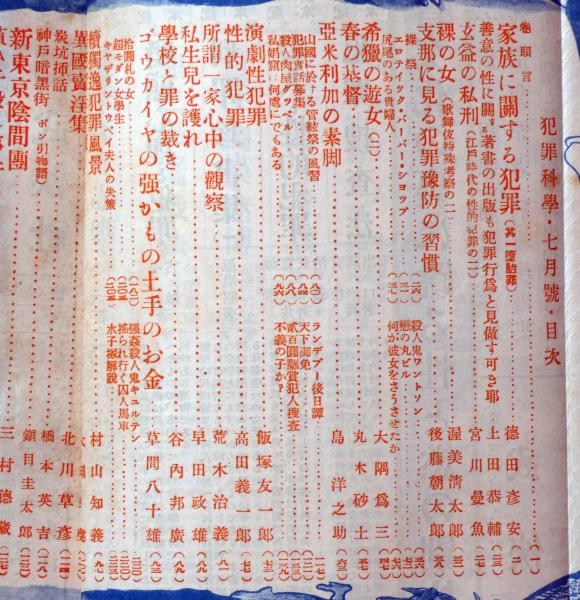 犯罪科學・七月號・目次
卷頭言
家族に關する犯罪(其一墮胎罪) 德田彦安
善意の性に關する著書の出版も犯罪行爲と見做す可き耶 上田恭輔
玄益の私刑(江戸時代の性的犯罪の二) 宮川曼魚
裸の女(歌舞伎特殊考察の二) 渥美清太郎
支那に見る犯罪豫防の習慣 後藤朝太郎
裸祭
エロテイック・バーバー・ショップ
尻尾のある貴婦人
殺人鬼ワントソン
戀の丸ビル
何が彼女をさうさせたか
希獵の遊女(二) 大隅爲三
春の基督 丸木砂土
亞米利加の素脚 島洋之助
山國に於ける管䯊祭の風習
犯罪實話募集
殺人肉屋グツペル
私娼窟は何處にでもある
ランデブー後日譚
天下御免
貳百圓懸賞犯人搜査
不義の子か?
演劇性犯罪 飯塚友一郎
性的犯罪 高田義一郎
所謂一家心中の觀察 荒木治義
私生兒を護れ 早田政雄
學校と罪の裁き 谷内邦廣
ゴウカイヤの强かもの土手のお金 草間八十雄
拾圓札の女
超モダン女學生
キヤザリントウベイ夫人の失策
强姦殺人鬼キュルテン
搖られ行く囚人馬車
水子塚解說
續獨逸犯罪風景 村山知義
異國賣淫集
炭坑挿話 北川草彦
神戸暗黑街(ポン引物語) 橋本英吉
新東京陰間團 鎭目圭太郎
三村德藏